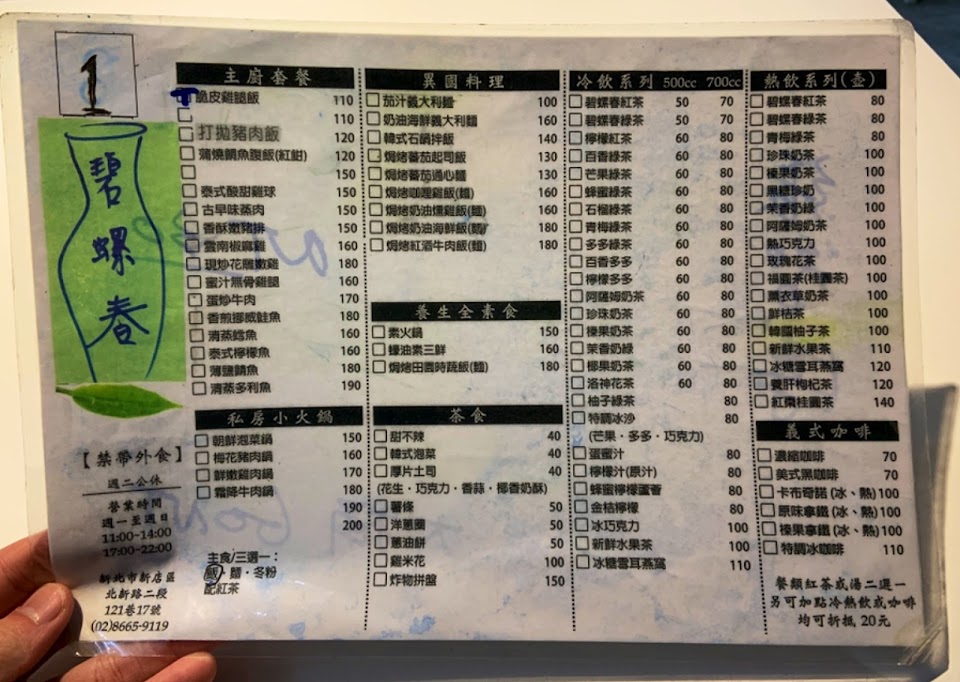 1
碧螺春
【禁帶外食】
週二公休
營業時間
週一至週日
11:00-14:00
17:00-22:00
新北市新店區
北新路二段
121巷17號
(02)8665-9119
主廚套餐
脆皮雞腿飯 110
110
打拋豬肉飯 120
蒲燒鯛魚腹飯(紅甜) 120
150
泰式酸甜雞球 150
古早味蒸肉 150
香酥嫩豬排 150
雲南椒麻雞 160
現炒花雕嫩雞 180
蜜汁無骨雞腿 160
蛋炒牛肉 170
香煎挪威鮭魚 180
清蒸鱈魚 160
泰式檸檬魚 160
薄鹽鯖魚 180
清蒸多利魚 190
私房小火鍋
朝鮮泡菜鍋 150
梅花豬肉鍋 160
鮮嫩雞肉鍋 170
霜降牛肉鍋 180
190
200
主食/三選一：
飯・麵・冬粉
配紅茶
異國料理
茄汁義大利麵 100
奶油海鮮義大利麵 160
韓式石鍋拌飯 140
焗烤蕃茄起司飯 130
焗烤蕃茄通心麵 130
焗烤咖哩雞飯(麵) 160
焗烤奶油燻雞飯(麵) 160
焗烤奶油海鮮飯(麵) 180
焗烤紅酒牛肉飯(麵) 180
養生全素食
素火鍋 150
蠔油素三鮮 160
焗烤田園時蔬飯(麵) 180
茶食
甜不辣 40
韓式泡菜 40
厚片土司 40
(花生・巧克力・香蒜・椰香奶酥)
薯條 50
洋蔥圈 50
蔥油餅 50
雞米花 100
炸物拼盤 150
冷飲系列 500cc 700cc
碧螺春紅茶 50 70
碧螺春綠茶 50 70
檸檬紅茶 60 80
百香綠茶 60 80
芒果綠茶 60 80
蜂蜜綠茶 60 80
石榴綠茶 60 80
青梅綠茶 60 80
多多綠茶 60 80
百香多多 60 80
檸檬多多 60 80
阿薩姆奶茶 60 80
珍珠奶茶 60 80
榛果奶茶 60 80
茉香奶綠 60 80
椰果奶茶 60 80
洛神花茶 60 80
柚子綠茶 80
特調冰沙 80
(芒果・多多・巧克力)
蛋蜜汁 80
檸檬汁(原汁) 80
蜂蜜檸檬蘆薈 80
金桔檸檬 80
冰巧克力 100
新鮮水果茶 100
冰糖雪耳燕窩 110
熱飲系列(壺)
碧螺春紅茶 80
碧螺春綠茶 80
青梅綠茶 100
珍珠奶茶 100
榛果奶茶 100
黑糖珍奶 100
茉香奶綠 100
阿薩姆奶茶 100
熱巧克力 100
玫瑰花茶 100
福圓茶(桂圓茶) 100
薰衣草奶茶 100
鮮桔茶 100
韓國柚子茶 100
新鮮水果茶 110
冰糖雪耳燕窩 120
養肝枸杞茶 120
紅棗桂圓茶 140
義式咖啡
濃縮咖啡 70
美式黑咖啡 70
卡布奇諾(冰、熱) 100
原味拿鐵(冰、熱) 100
榛果拿鐵(冰、熱) 100
特調冰咖啡 110
餐類紅茶或湯二選一
另可加點冷熱飲或咖啡
均可折抵 20元